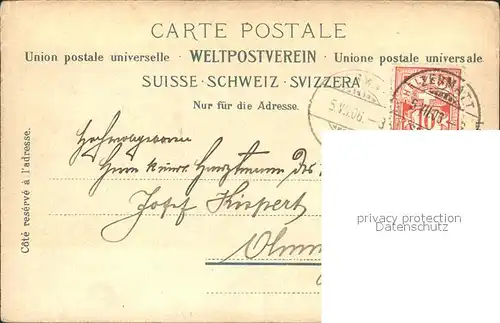 CARTE POSTALE
Union postale universelle · WELTPOSTVEREIN · Unione postale universale
SUISSE · SCHWEIZ · SVIZZERA
Nur für die Adresse.
Côté reservé à l'adresse.
5.VII.06.
10
Hochwolgeboren
Herrn
Josef Kispert
privacy protection
Datenschutz